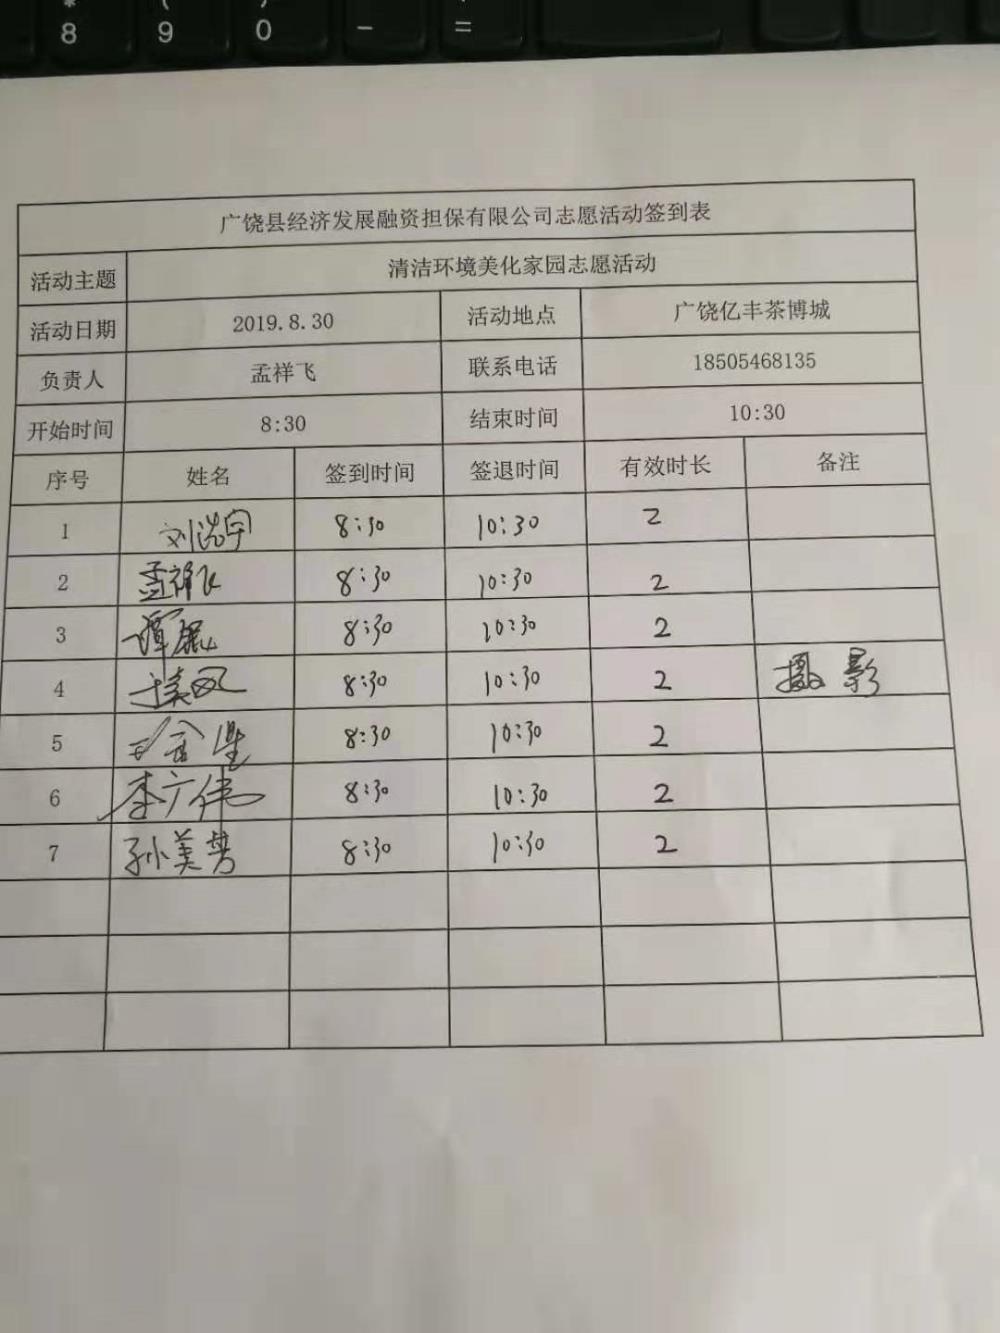 * ( )
8 9 0 - =
广饶县经济发展融资担保有限公司志愿活动签到表
活动主题 清洁环境美化家园志愿活动
活动日期 2019.8.30 活动地点 广饶亿丰茶博城
负责人 孟祥飞 联系电话 18505468135
开始时间 8:30 结束时间 10:30
序号 姓名 签到时间 签退时间 有效时长 备注
1 刘浩宇 8:30 10:30 2
2 孟祥飞 8:30 10:30 2
3 8:30 10:30 2
4 8:30 10:30 2 摄影
5 8:30 10:30 2
6 李广伟 8:30 10:30 2
7 孙美 8:30 10:30 2